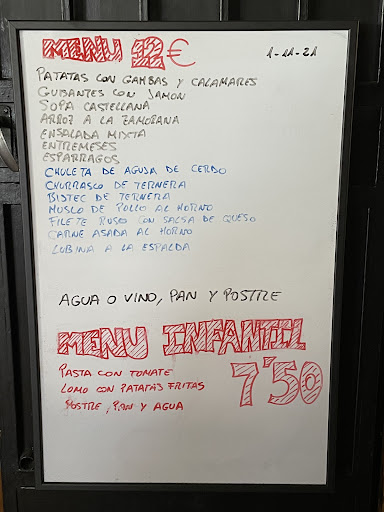 MENU 12€
1-11-21
PATATAS CON GAMBAS Y CALAMARES
GUISANTES CON JAMON
SOPA CASTELLANA
ARROZ A LA ZAMORANA
ENSALADA MIXTA
ENTREMESES
ESPARRAGOS
CHULETA DE AGUJA DE CERDO
CHURRASCO DE TERNERA
BISTEC DE TERNERA
MUSLO DE POLLO AL HORNO
FILETE RUSO CON SALSA DE QUESO
CARNE ASADA AL HORNO
LUBINA A LA ESPALDA
AGUA O VINO, PAN Y POSTRE
MENU INFANTIL
7'50
PASTA CON TOMATE
LOMO CON PATATAS FRITAS
POSTRE, PAN Y AGUA